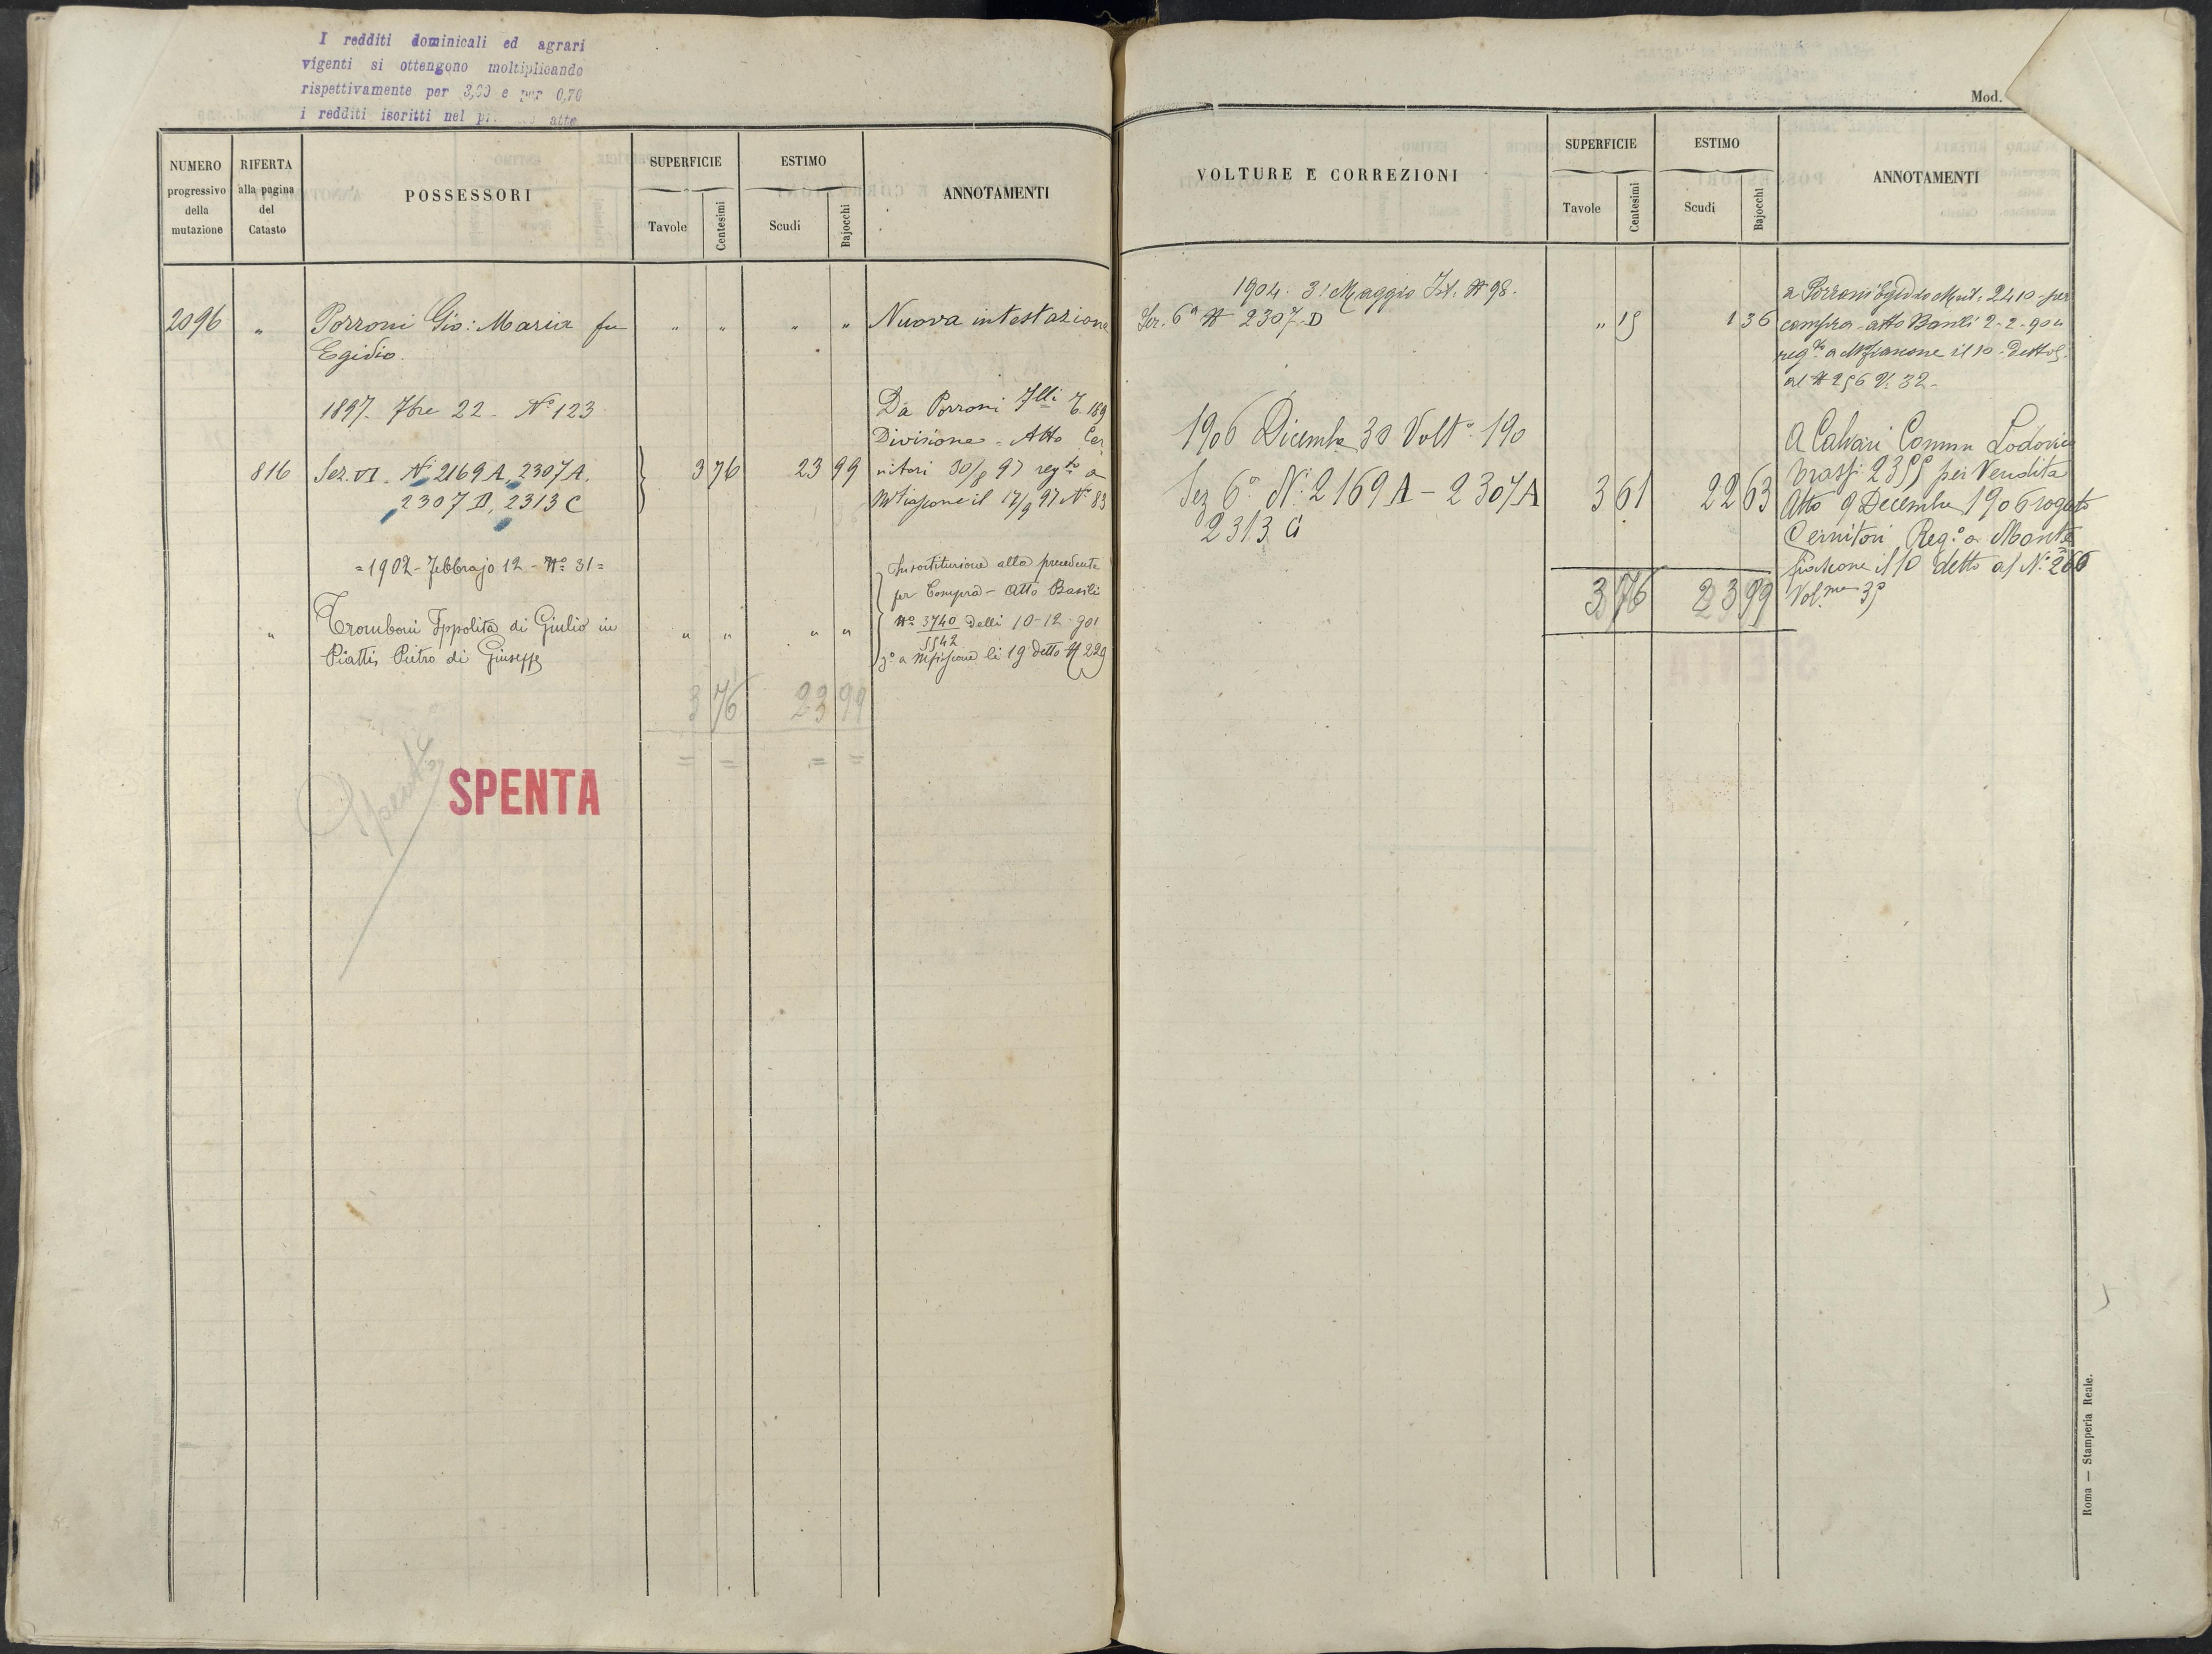 I redditi dominicali ed agrari
vigenti si ottengono moltiplicando
rispettivamente per 3,00 e per 0,70
i redditi iscritti nel atto
NUMERO progressivo della mutazione
RIFERTA alla pagina del Catasto
POSSESSORI
SUPERFICIE
Tavole Centesimi
ESTIMO
Scudi Bajocchi
ANNOTAMENTI
2096 " Porroni Gio: Maria fu " " " " Nuova intestazione
Egidio.
1897. 7bre 22 - No 123
Da Porroni Flli
Divisione - Atto Cer
816 Sez. VI. Ni 2169 A, 2307 A. 3 76 23 99 nitori 30/8 97 regto a
2307 D, 2313 C
Mtfiascone il 17/9 97 No 83
=1902 - Febbrajo 12 - No 31=
In sostituzione alla precedente
per Compra - Atto Basili
" Tromboni Ippolita di Giulio in " " " " No 3740/5542 delli 10-12-901
Piatti, Pietro di Giuseppe
a Mfiascone li 19 detto N 229
3 76 23 99
= = = =
Spenta
SPENTA
Mod.
VOLTURE E CORREZIONI
SUPERFICIE
Tavole Centesimi
ESTIMO
Scudi Bajocchi
ANNOTAMENTI
1904. 31 Maggio N 98.
Sez. 6a N 2307. D " 15 1 36
a Porroni Egidio Mut: 2410 per
compra - atto Basili 2-2-904
regto a Mfiascone il 10 detto
al N 256 V. 32 -
1906 Dicembre 30 Volta 190
Sez 6a Ni 2169 A - 2307 A 3 61 22 63
2313 C
A Lodovico
2355 per Vendita
Atto 9 Decembre 1906 rogato
Cernitori Rego a Monte
fiascone il 10 detto al No 266
Volme 35
3 76 23 99
Roma — Stamperia Reale.